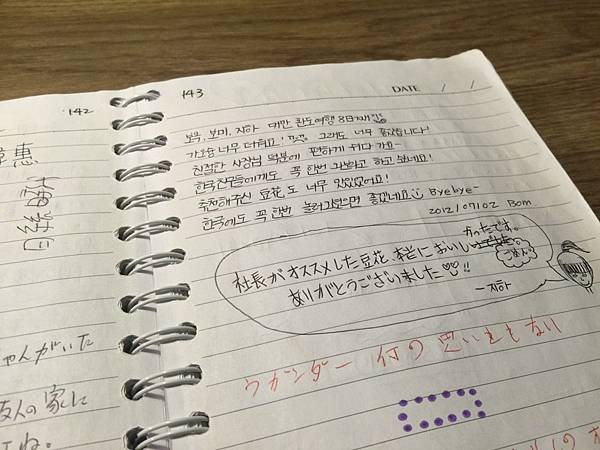 142
惠
143
DATE / /
보묵, 보미, 지하 대만 환도여행 8일째
가오슝 너무 더워요! 그래도 너무 좋았습니다!
친절한 사장님 덕분에 편하게 쉬다 가요~
한국친구들에게도 꼭 한번 가보라고 하고 싶네요!
추천해주신 豆花도 너무 맛있었어요!
한국에도 꼭 한번 놀러가보면 좋겠네요 Byebye~
2012/07/02 Bom
かったです。
社長がオススメした豆花、本当においし
ごめん
ありがとうございました♡♡!!
- 지하
ウガンダー 何の思いもない
ゃんがいた
友人の家に
ね。